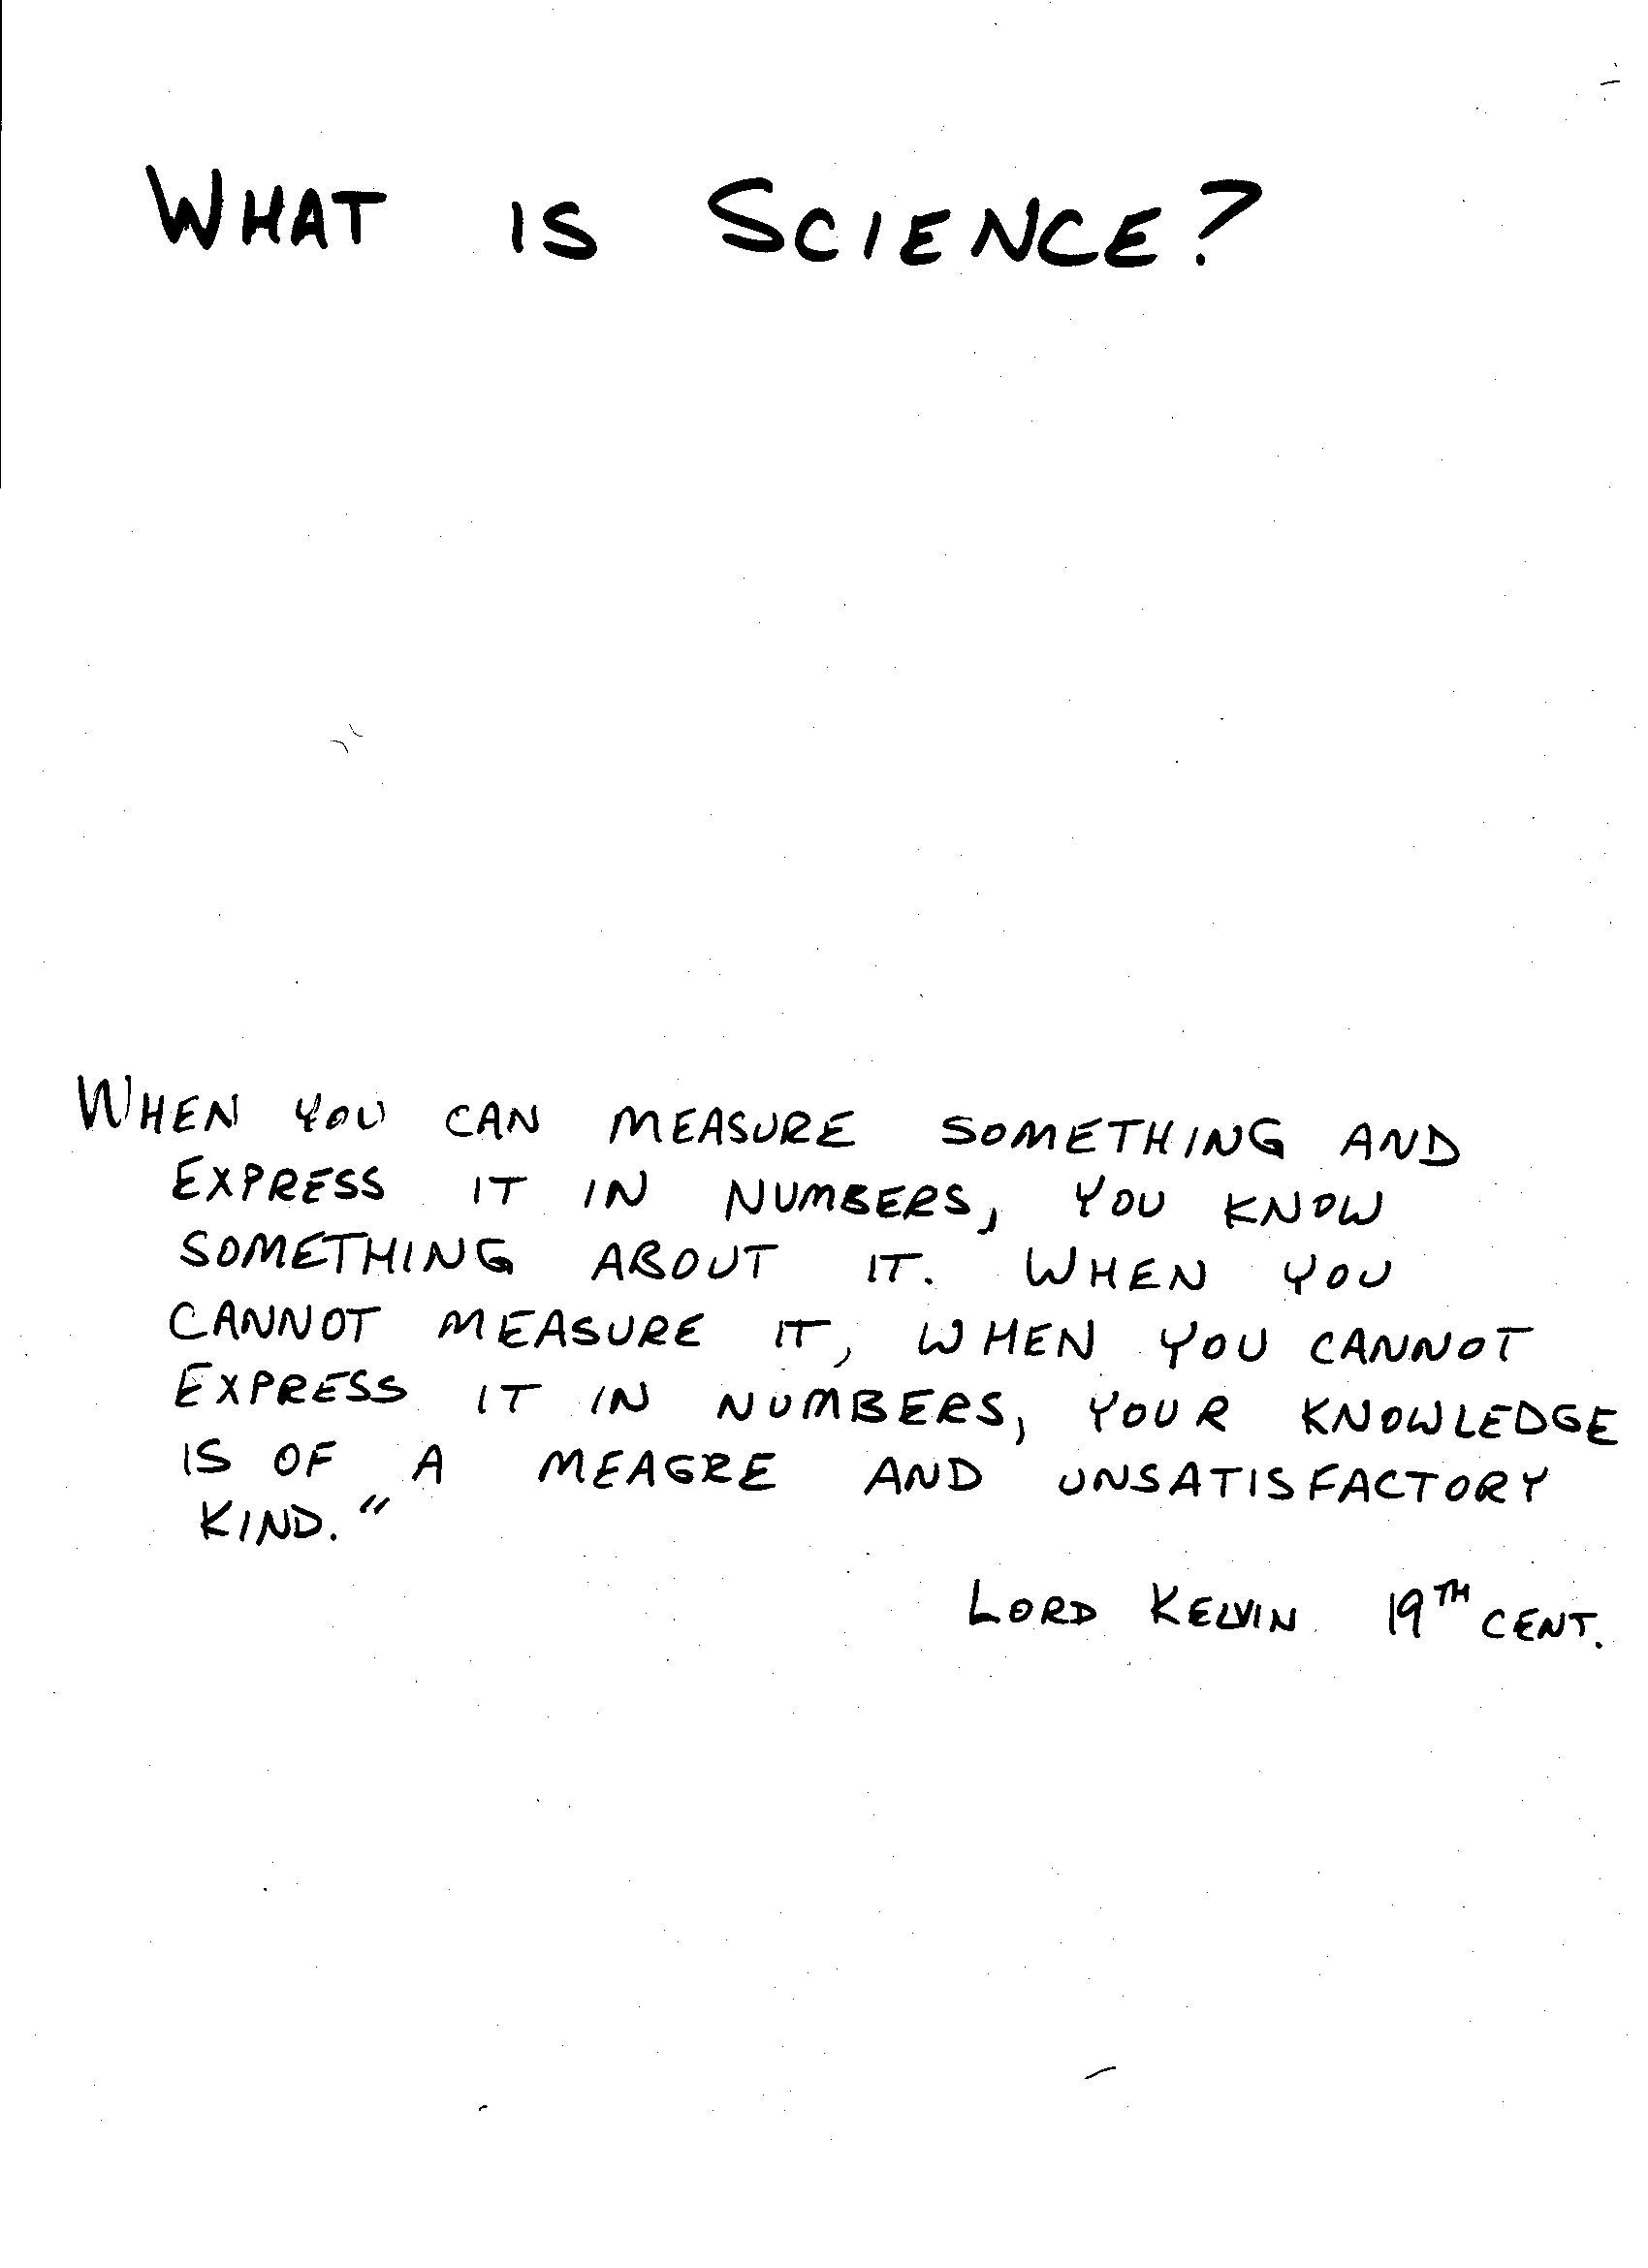 WHAT IS SCIENCE?
WHEN YOU CAN MEASURE SOMETHING AND
EXPRESS IT IN NUMBERS, YOU KNOW
SOMETHING ABOUT IT. WHEN YOU
CANNOT MEASURE IT, WHEN YOU CANNOT
EXPRESS IT IN NUMBERS, YOUR KNOWLEDGE
IS OF A MEAGRE AND UNSATISFACTORY
KIND."
LORD KELVIN 19TH CENT.